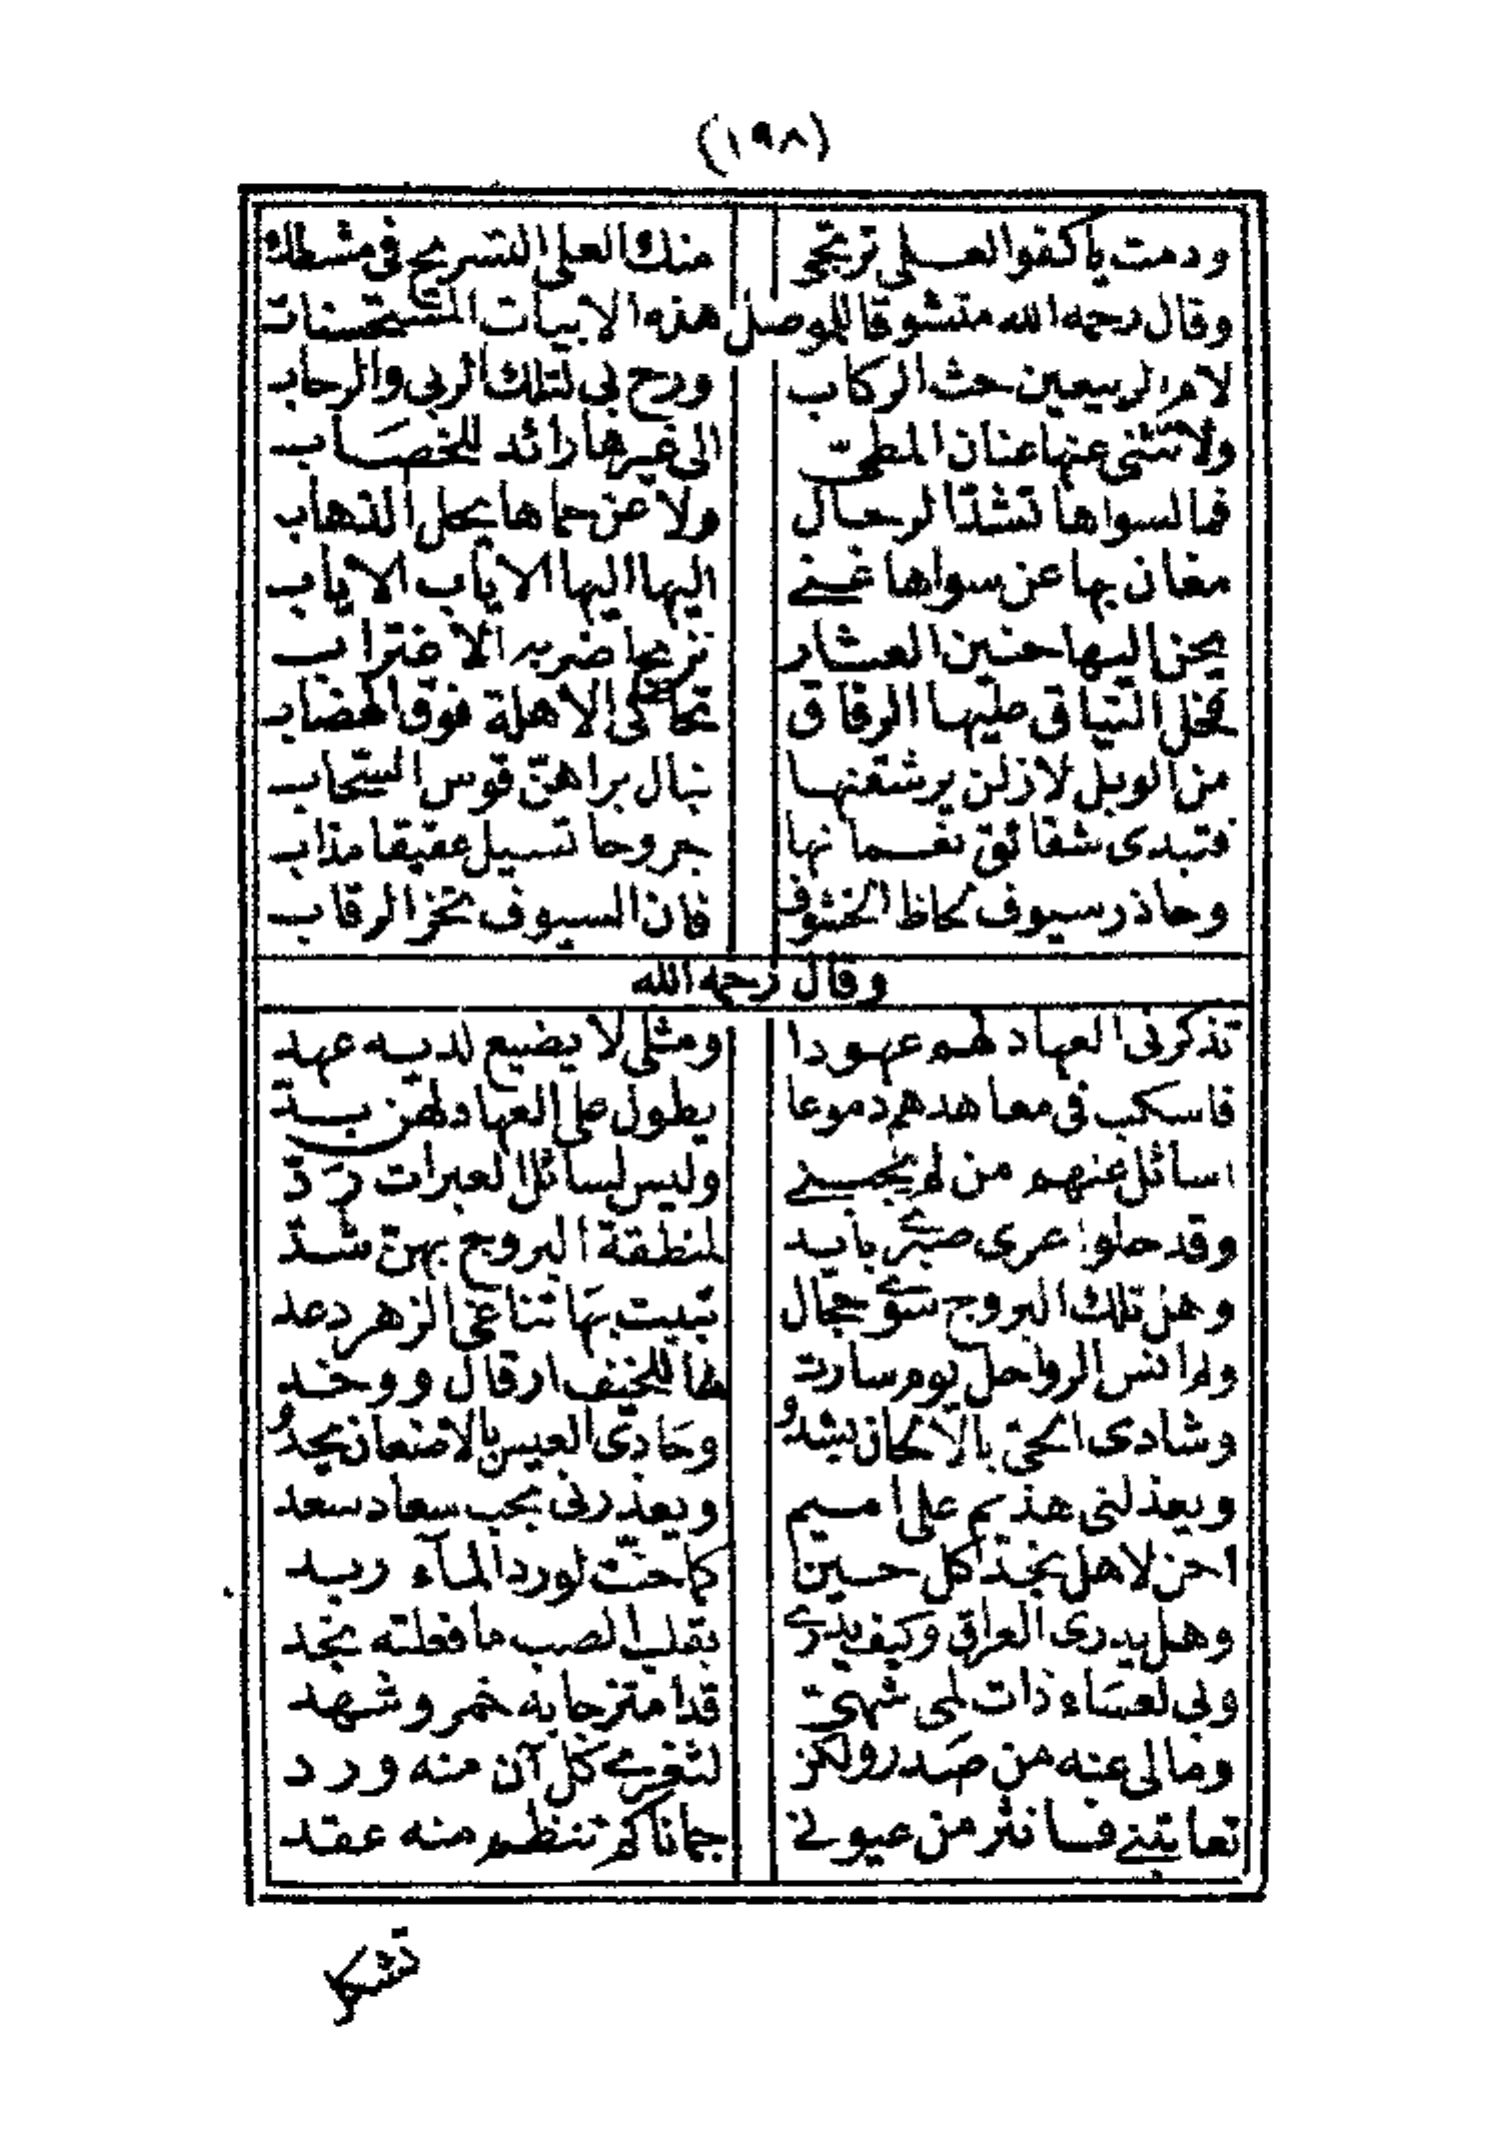 (١٩٨)
ودمت يا كفوالعلى ترتجى منك العلى التسريح في مشطك
وقال رحمه الله متشوقا للموصل هذه الابيات المستحسنات
لام الربيعين حث الركاب ورح بي لتلك الربى والرحاب
ولا تثنى عنها عنان المطىّ الى غيرها رائد للخصاب
فما لسواها تشدّ الرحال ولا عن حماها يحل الذهاب
مغان بها عن سواها غنى اليها اليها الاياب الاياب
يحن اليها حنين العشار نزيحا ضربه الاغتراب
تخل النياق عليها الرفاق تحاكى الاهلة فوق الهضاب
من الوبل لا زلن يرشقنها نبال براهنّ قوس السّحاب
فتبدى شقائق نعمانها جروحا تسيل عقيقا مذاب
وحاذر سيوف لحاظ الخشوف فان السيوف تحز الرقاب
وقال رحمه الله
تذكرنى العهاد لهم عهودا ومثلى لا يضيع لديه عهد
فاسكب فى معاهدهم دموعا يطول على العهاد لهن
اسائل عنهم من لم يجبنى وليس لسائل العبرات رَدّ
وقد حلوا عرى صبرى بايد لمنطقة البروج بهنّ شدّ
وهل تلك البروج سوى حجال تبيت بها تناغى الزهر دعد
ولم انس الرواحل يوم سارت لها للخيف ارقال ووخد
وشادى الحىّ بالالحان يشدو وحادى العيس بالاضعان يحدو
ويعذلنى هذيم على اميم ويعذرنى بحب سعاد سعد
احن لاهل نجد كل حين كما حنّت لورد المآء ربد
وهل يدرى العراق وكيف يدرى بقلب الصب ما فعلته نجد
وبى لعساء ذات لمى شهىّ قد امتزجا به خمر وشهد
ومالى عنه من صدر ولكن لثغرى كل آن منه ورد
تعاتبنى فانثر من عيونى جمانا كم تنظم منه عقد